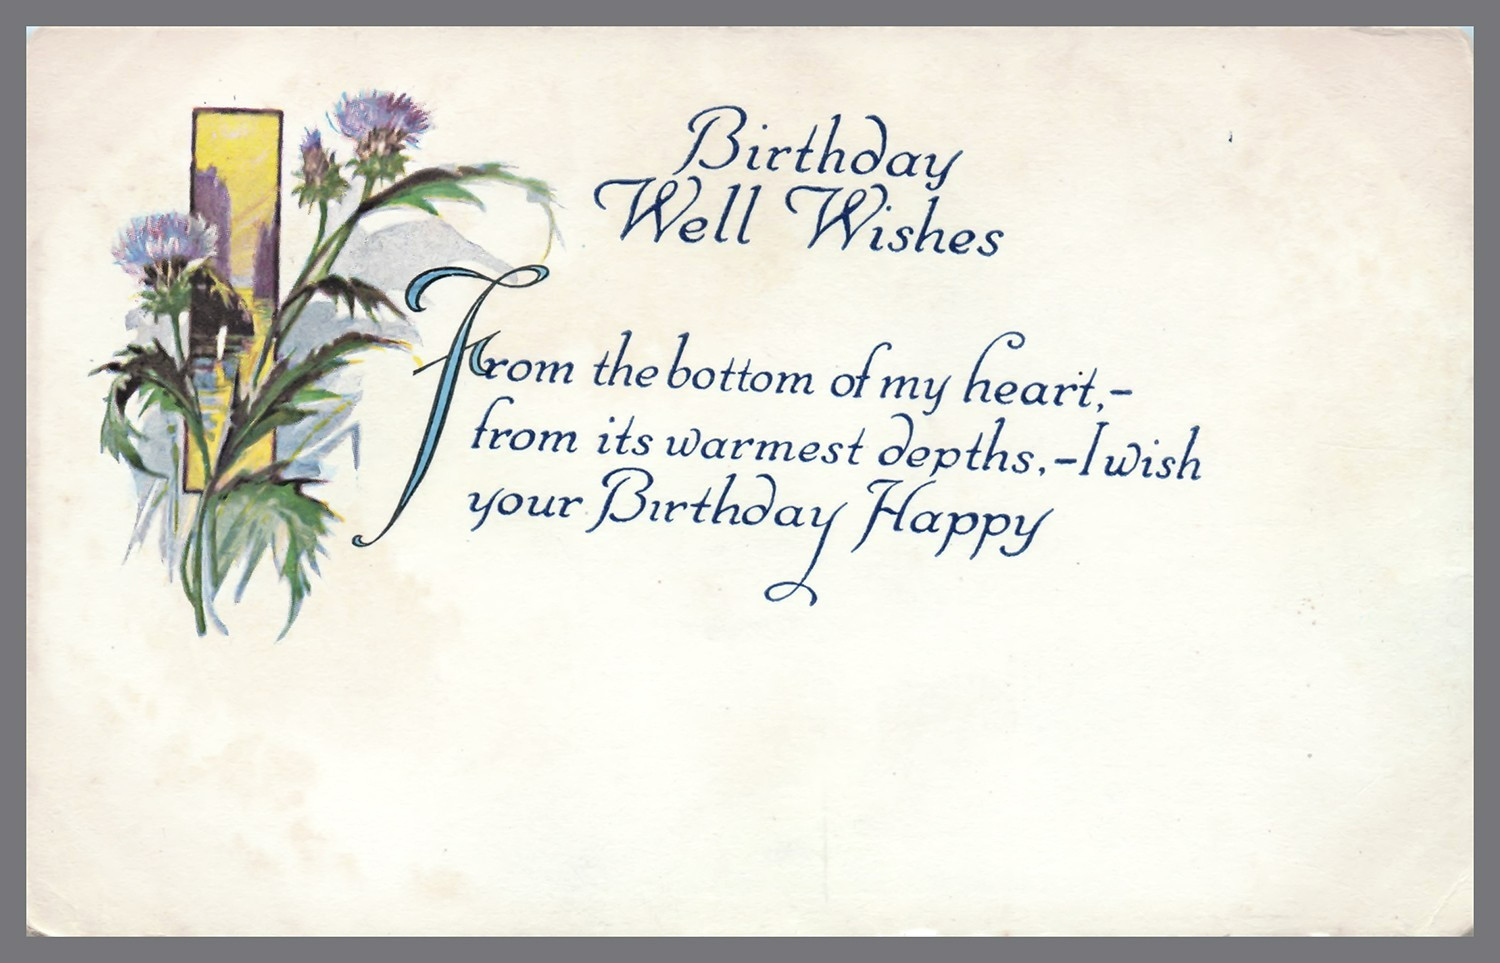 Birthday
Well Wishes
From the bottom of my heart,–
from its warmest depths,–I wish
your Birthday Happy